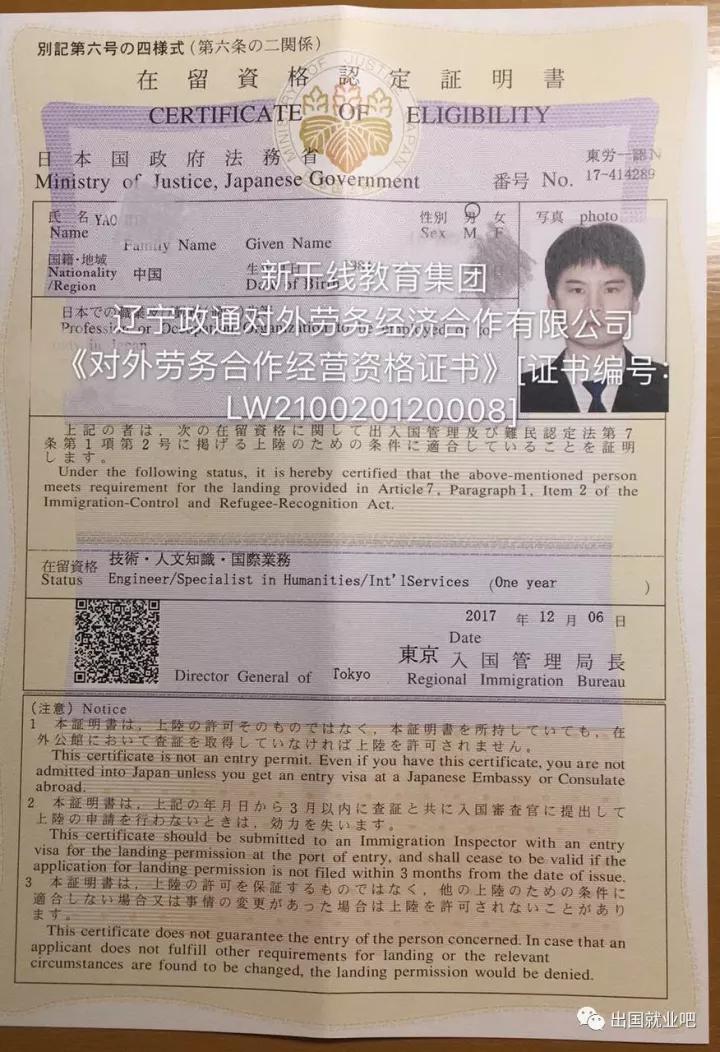 別記第六号の四様式(第六条の二関係)
在留資格認定証明書
CERTIFICATE OF ELIGIBILITY
日本国政府法務省
Ministry of Justice, Japanese Government
東労一認N
番号 No. 17-414289
氏名 YAO
Name
Family Name Given Name
性別 男 女
Sex M F
写真 photo
国籍・地域
Nationality 中国
/Region
Date of Birth
新干线教育集团
日本での
辽宁政通对外劳务经济合作有限公司
Profession or Occupation Organization to be employed or to
study in Japan
《对外劳务合作经营资格证书》[证书编号:
LW210020120008]
上記の者は、次の在留資格に関して出入国管理及び難民認定法第7
条第1項第2号に掲げる上陸のための条件に適合していることを証明
します。
Under the following status, it is hereby certified that the above-mentioned person
meets requirement for the landing provided in Article 7, Paragraph 1, Item 2 of the
Immigration-Control and Refugee-Recognition Act.
在留資格 技術・人文知識・国際業務
Status Engineer/Specialist in Humanities/Int'lServices (One year )
2017 年 12 月 06 日
Date
東京 入国管理局長
Director General of Tokyo Regional Immigration Bureau
(注意) Notice
1 本証明書は、上陸の許可そのものではなく、本証明書を所持していても、在
外公館において査証を取得していなければ上陸を許可されません。
This certificate is not an entry permit. Even if you have this certificate, you are not
admitted into Japan unless you get an entry visa at a Japanese Embassy or Consulate
abroad.
2 本証明書は、上記の年月日から3月以内に査証と共に入国審査官に提出して
上陸の申請を行わないときは、効力を失います。
This certificate should be submitted to an Immigration Inspector with an entry
visa for the landing permission at the port of entry, and shall cease to be valid if the
application for landing permission is not filed within 3 months from the date of issue.
3 本証明書は、上陸の許可を保証するものではなく、他の上陸のための条件に
適合しない場合又は事情の変更があった場合は上陸を許可されないことがあり
ます。
This certificate does not guarantee the entry of the person concerned. In case that an
applicant does not fulfill other requirements for landing or the relevant
circumstances are found to be changed, the landing permission would be denied.
出国就业吧